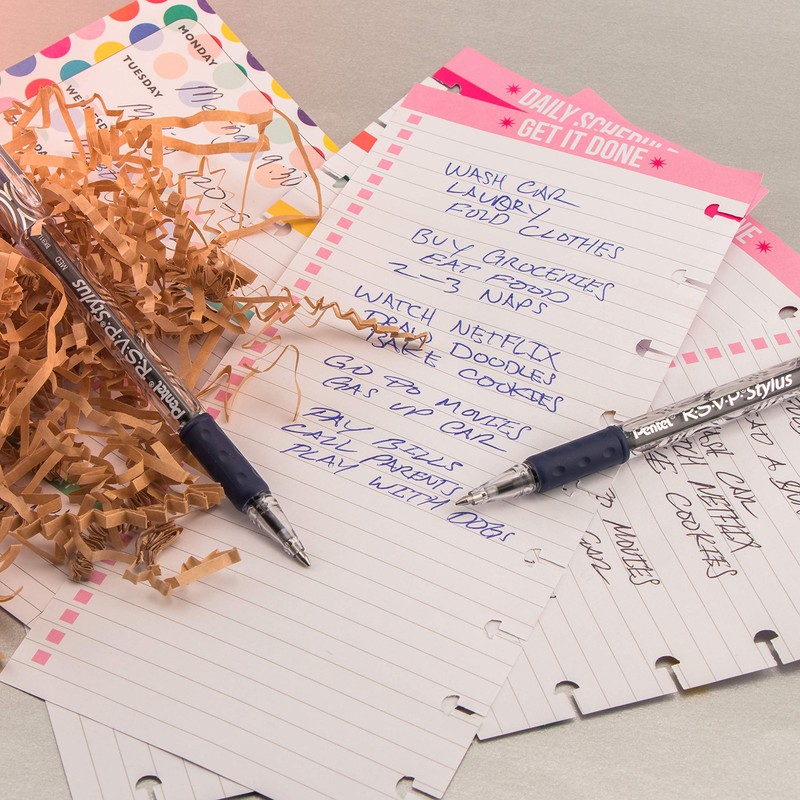 MONDAY
TUESDAY
9:30
DAILY SCHEDULE
GET IT DONE
WASH CAR
LAUDRY
FOLD CLOTHES
BUY GROCERIES
EAT FOOD
2-3 NAPS
WATCH NETFLIX
DRAW DOODLES
BAKE COOKIES
GO TO MOVIES
GAS UP CAR
PAY BILLS
CALL PARENTS
PLAY WITH DOGS
MED
Pentel R.S.V.P. Stylus
Pentel R.S.V.P. Stylus
CAR
NETFLIX
COOKIES
MOVIES
CAR